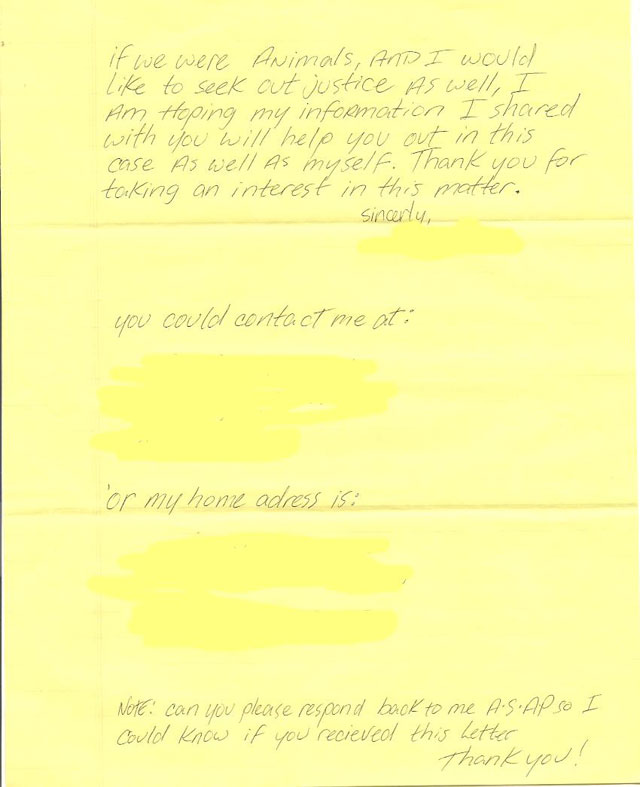 if we were Animals, AND I would
like to seek out justice As well, I
Am Hoping my information I shared
with you will help you out in this
case As well As myself. Thank you for
taking an interest in this matter.
sincerly,
you could contact me at:
or my home adress is:
Note: can you please respond back to me A.S.AP so I
could know if you recieved this Letter
Thank you!